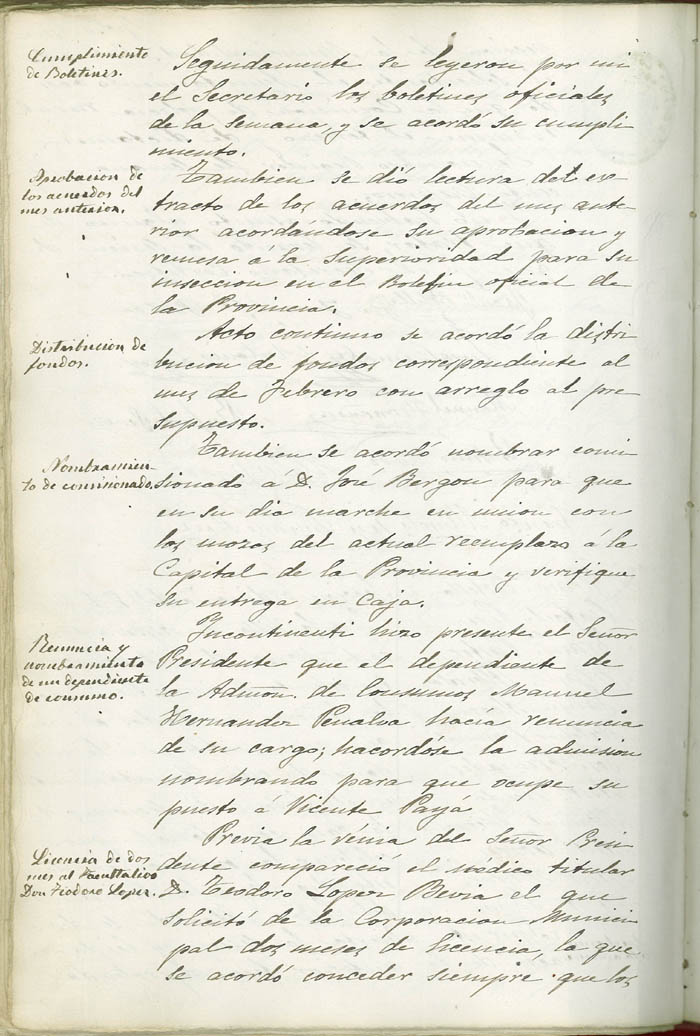 Cumplimiento
de Boletines.
Seguidamente se leyeron por mi
el Secretario los boletines oficiales
de la semana, y se acordó su cumpli
miento.
Aprobacion de
los acuerdos del
mes anterior.
Tambien se dió lectura del es-
tracto de los acuerdos del mes ante-
rior acordándose su aprobacion y
remesa á la Superioridad para su
insercion en el Boletin oficial de
la Provincia.
Distribucion de
fondos.
Acto continuo se acordó la distri
bucion de fondos correspondiente al
mes de Febrero con arreglo al pre-
supuesto.
Nombramien-
to de comisionado.
Tambien se acordó nombrar comi
sionado á D. José Bergon para que
en su dia marche en union con
los mozos del actual reemplazo á la
Capital de la Provincia y verifique
su entrega en Caja.
Renuncia y
nombramiento
de un dependiente
de consumo.
Incontinenti hizo presente el Señor
Presidente que el dependiente de
la Admon. de Consumos Manuel
Hernandez Penalva hacía renuncia
de su cargo; hacordóse la admision
nombrando para que ocupe su
puesto á Vicente Payá
Licencia de dos
mes al Facultativo
Don Tiodoro Lopez.
Previa la vénia del Señor Presi
dente compareció el médico titular
D. Teodoro Lopez Bevia el que
solicitó de la Corporacion Munici
pal dos meses de licencia, la que
se acordó conceder siempre que los